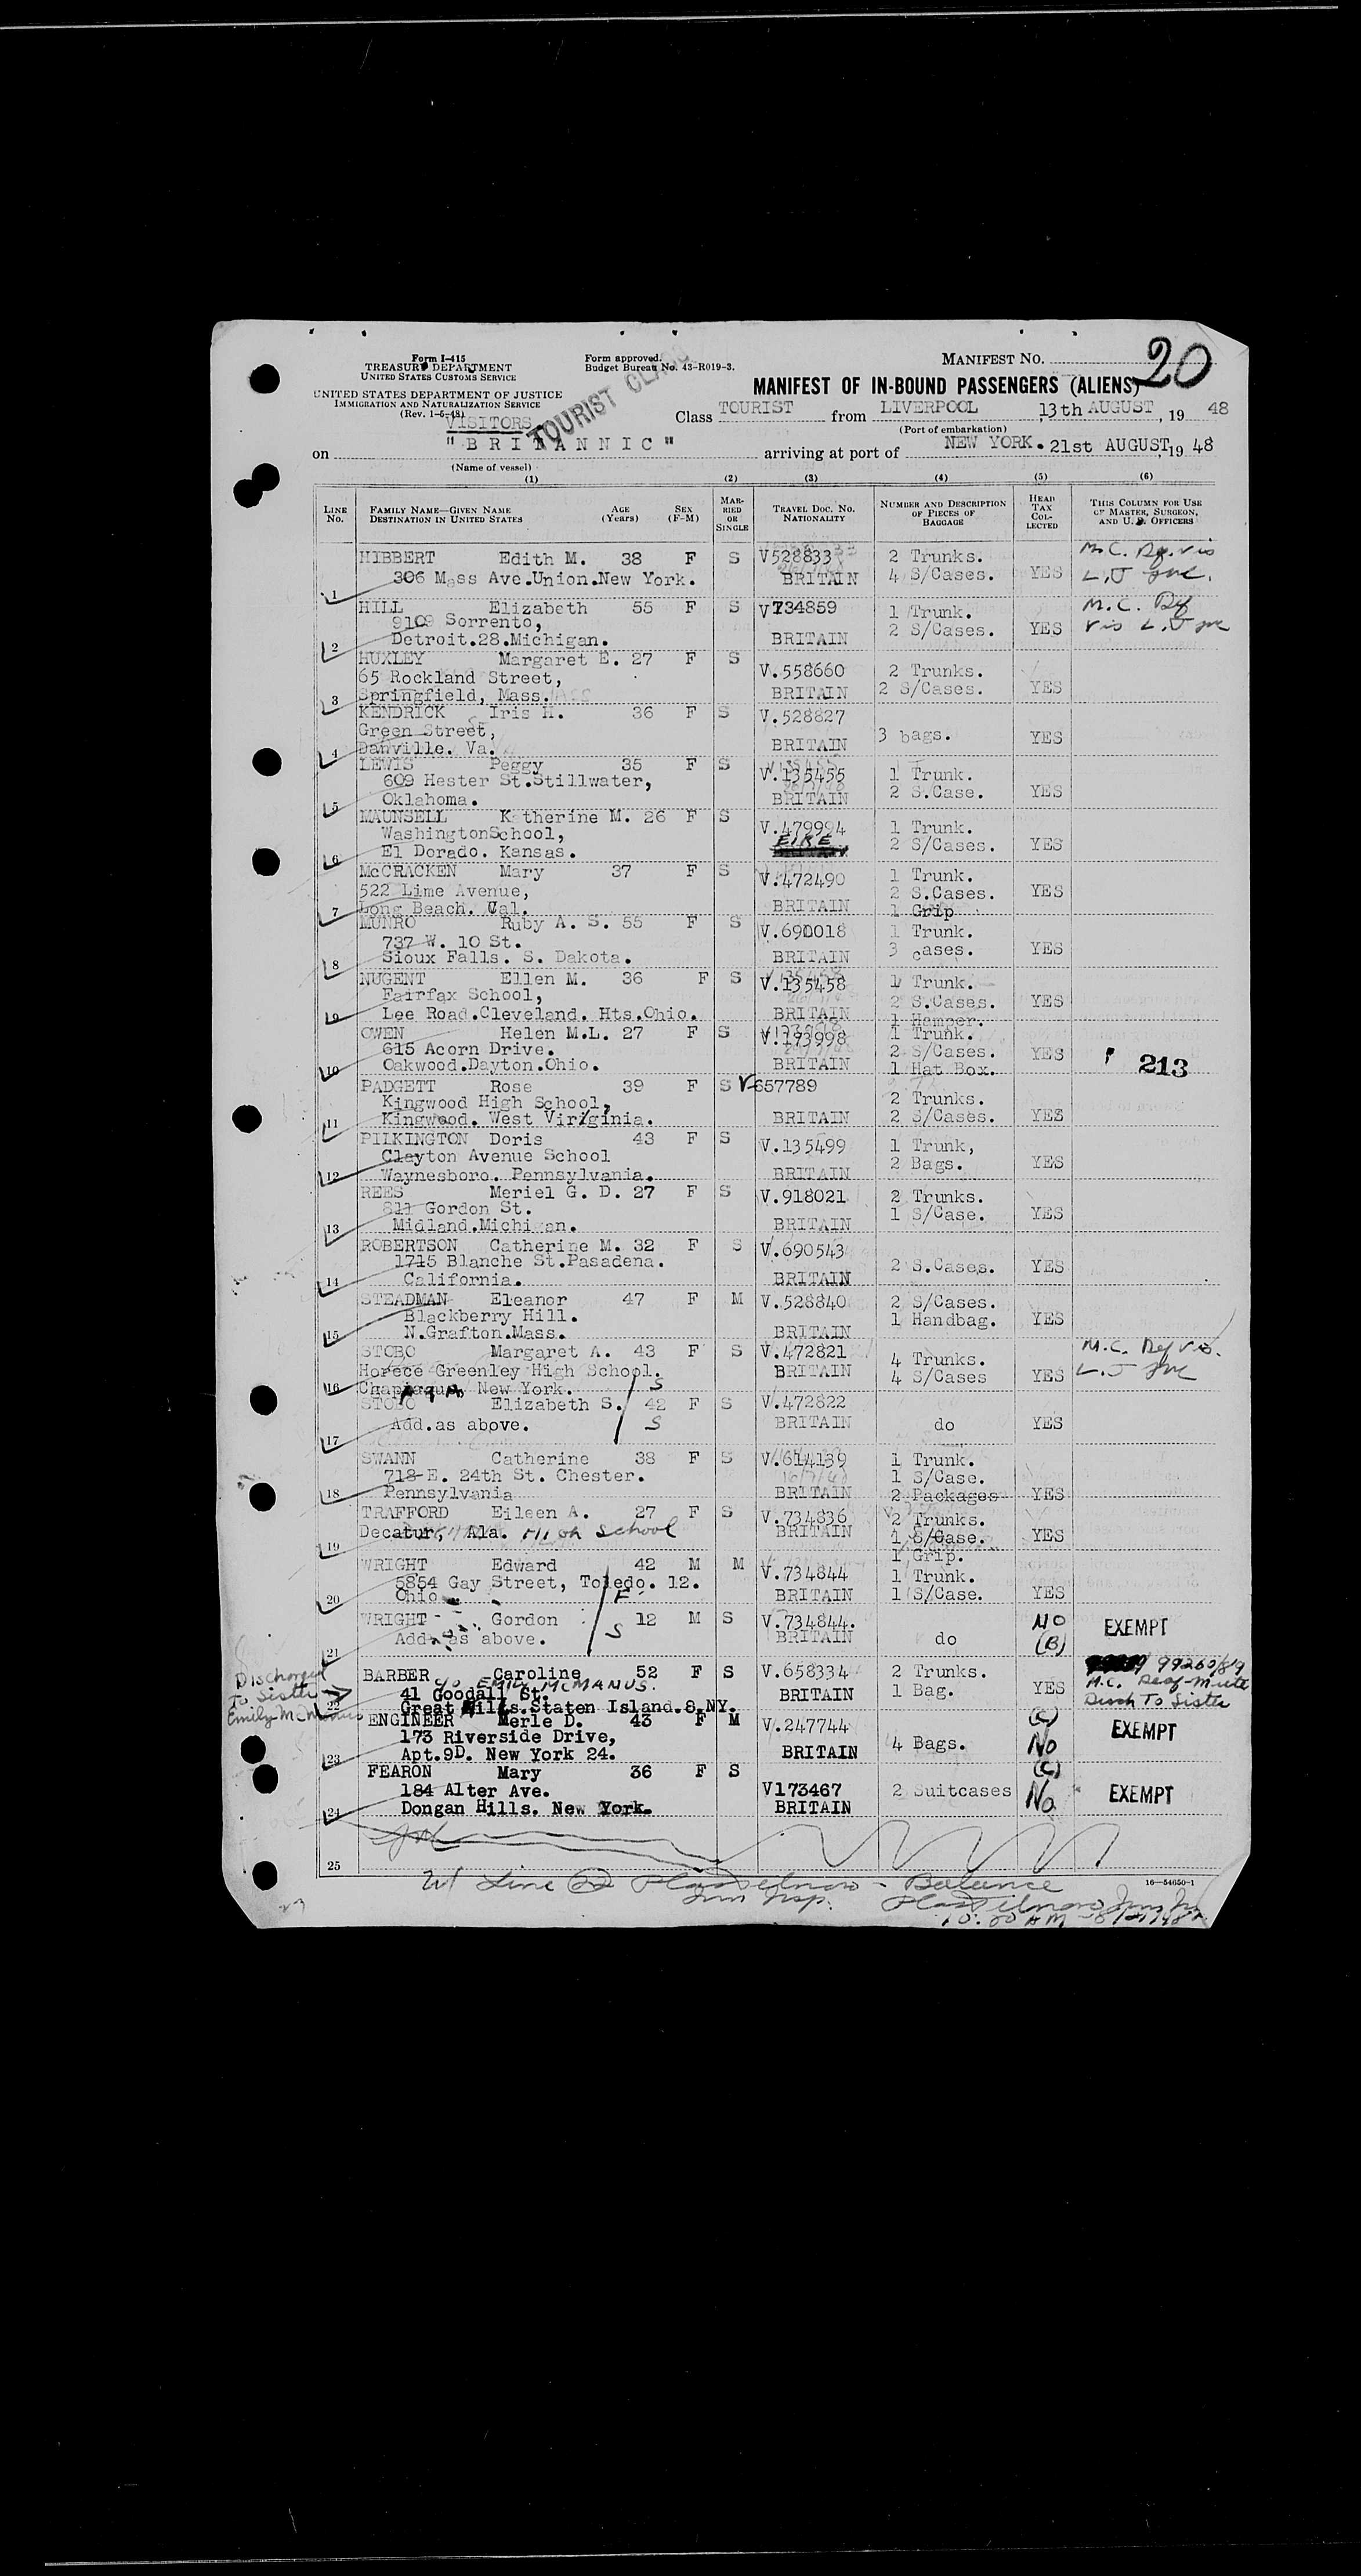 Form I-415
TREASURY DEPARTMENT
UNITED STATES CUSTOMS SERVICE
UNITED STATES DEPARTMENT OF JUSTICE
IMMIGRATION AND NATURALIZATION SERVICE
(Rev. 1-5-48)
Form approved.
Budget Bureau No. 43-R019-3.
TOURIST CLASS
MANIFEST NO. 20
MANIFEST OF IN-BOUND PASSENGERS (ALIENS)
Class TOURIST from LIVERPOOL, 13th AUGUST, 19 48
(Port of embarkation)
VISITORS
on "BRITANNIC" arriving at port of NEW YORK. 21st AUGUST, 19 48
(Name of vessel)
(1) (2) (3) (4) (5) (6)
LINE No. FAMILY NAME—GIVEN NAME DESTINATION IN UNITED STATES AGE (Years) SEX (F-M) MARRIED OR SINGLE TRAVEL DOC. NO. NATIONALITY NUMBER AND DESCRIPTION OF PIECES OF BAGGAGE HEAD TAX COLLECTED THIS COLUMN FOR USE OF MASTER, SURGEON, AND U. S. OFFICERS
HIBBERT Edith M. 38 F S V528833 2 Trunks. M.C.
306 Mass Ave.Union.New York. BRITAIN 4 S/Cases. YES
1
HILL Elizabeth 55 F S V734859 1 Trunk. M.C.
9109 Sorrento, 2 S/Cases. YES
2 Detroit.28.Michigan. BRITAIN
HUXLEY Margaret E. 27 F S V.558660 2 Trunks.
65 Rockland Street, 2 S/Cases. YES
3 Springfield, Mass. BRITAIN
KENDRICK Iris H. 36 F S V.528827
Green Street, 3 bags. YES
4 Danville. Va. BRITAIN
LEWIS Peggy 35 F S V.135455 1 Trunk.
609 Hester St.Stillwater, 2 S.Case. YES
5 Oklahoma. BRITAIN
MAUNSELL Katherine M. 26 F S V.479994 1 Trunk.
WashingtonSchool, EIRE 2 S/Cases. YES
6 El Dorado. Kansas.
McCRACKEN Mary 37 F S V.472490 1 Trunk.
522 Lime Avenue, 2 S.Cases. YES
7 Long Beach. Cal. BRITAIN 1 Grip
MUNRO Ruby A. S. 55 F S V.690018 1 Trunk.
737 W. 10 St. 3 cases. YES
8 Sioux Falls. S. Dakota. BRITAIN
NUGENT Ellen M. 36 F S V.135458 1 Trunk.
Fairfax School, 2 S.Cases. YES
9 Lee Road.Cleveland. Hts.Ohio. BRITAIN 1 Hamper.
OWEN Helen M.L. 27 F S V.193998 1 Trunk.
615 Acorn Drive. 2 S/Cases. YES 213
10 Oakwood.Dayton.Ohio. BRITAIN 1 Hat Box.
PADGETT Rose 39 F S V-657789
Kingwood High School, 2 Trunks.
11 Kingwood. West Virginia. BRITAIN 2 S/Cases. YES
PILKINGTON Doris 43 F S V.135499 1 Trunk,
Clayton Avenue School 2 Bags. YES
12 Waynesboro. Pennsylvania. BRITAIN
REES Meriel G. D. 27 F S V.918021 2 Trunks.
811 Gordon St. 1 S/Case. YES
13 Midland.Michigan. BRITAIN
ROBERTSON Catherine M. 32 F S V.690543
1715 Blanche St.Pasadena. 2 S.Cases. YES
14 California. BRITAIN
STEADMAN Eleanor 47 F M V.528840 2 S/Cases.
Blackberry Hill. 1 Handbag. YES
15 N.Grafton.Mass. BRITAIN
STOBO Margaret A. 43 F S V.472821 4 Trunks. M.C.
Horece Greenley High School. BRITAIN 4 S/Cases YES
16 Chappaqua New York. S
STOBO Elizabeth S. 42 F S V.472822
Add.as above. S BRITAIN do YES
17
SWANN Catherine 38 F S V.614139 1 Trunk.
718 E. 24th St. Chester. 1 S/Case.
18 Pennsylvania BRITAIN 2 Packages YES
TRAFFORD Eileen A. 27 F S V.734836 2 Trunks.
Decatur, Ala. High School BRITAIN 1 S/Case. YES
19 1 Grip.
WRIGHT Edward 42 M M V.734844 1 Trunk.
5854 Gay Street, Toledo. 12. BRITAIN 1 S/Case. YES
20 Ohio F
WRIGHT Gordon 12 M S V.734844. NO EXEMPT
Add. as above. S BRITAIN do (B)
21
Discharged To Sister Emily McManus
BARBER Caroline 52 F S V.658334 2 Trunks. 99260/89
c/o EMILY MCMANUS.
22 41 Goodall St. BRITAIN 1 Bag. YES M.C. Deaf-Mute
Great Kills.Staten Island.8.NY. Disch To Sister
ENGINEER Merle D. 43 F M V.247744 (C) EXEMPT
173 Riverside Drive, 4 Bags. No
23 Apt.9D. New York 24. BRITAIN
FEARON Mary 36 F S (C)
184 Alter Ave. V173467 2 Suitcases No EXEMPT
24 Dongan Hills. New York. BRITAIN
25
16—54650-1
Line 22 - Balance
Imm Insp.
10:20 AM 8/21/48